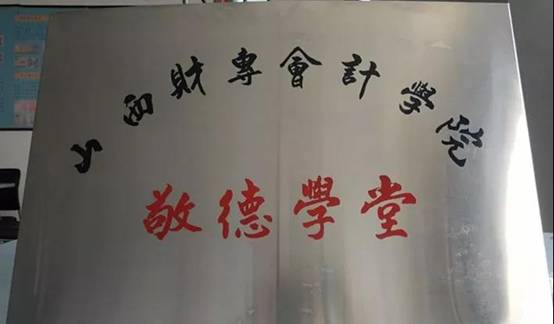 山西財專會計學院
敬德學堂